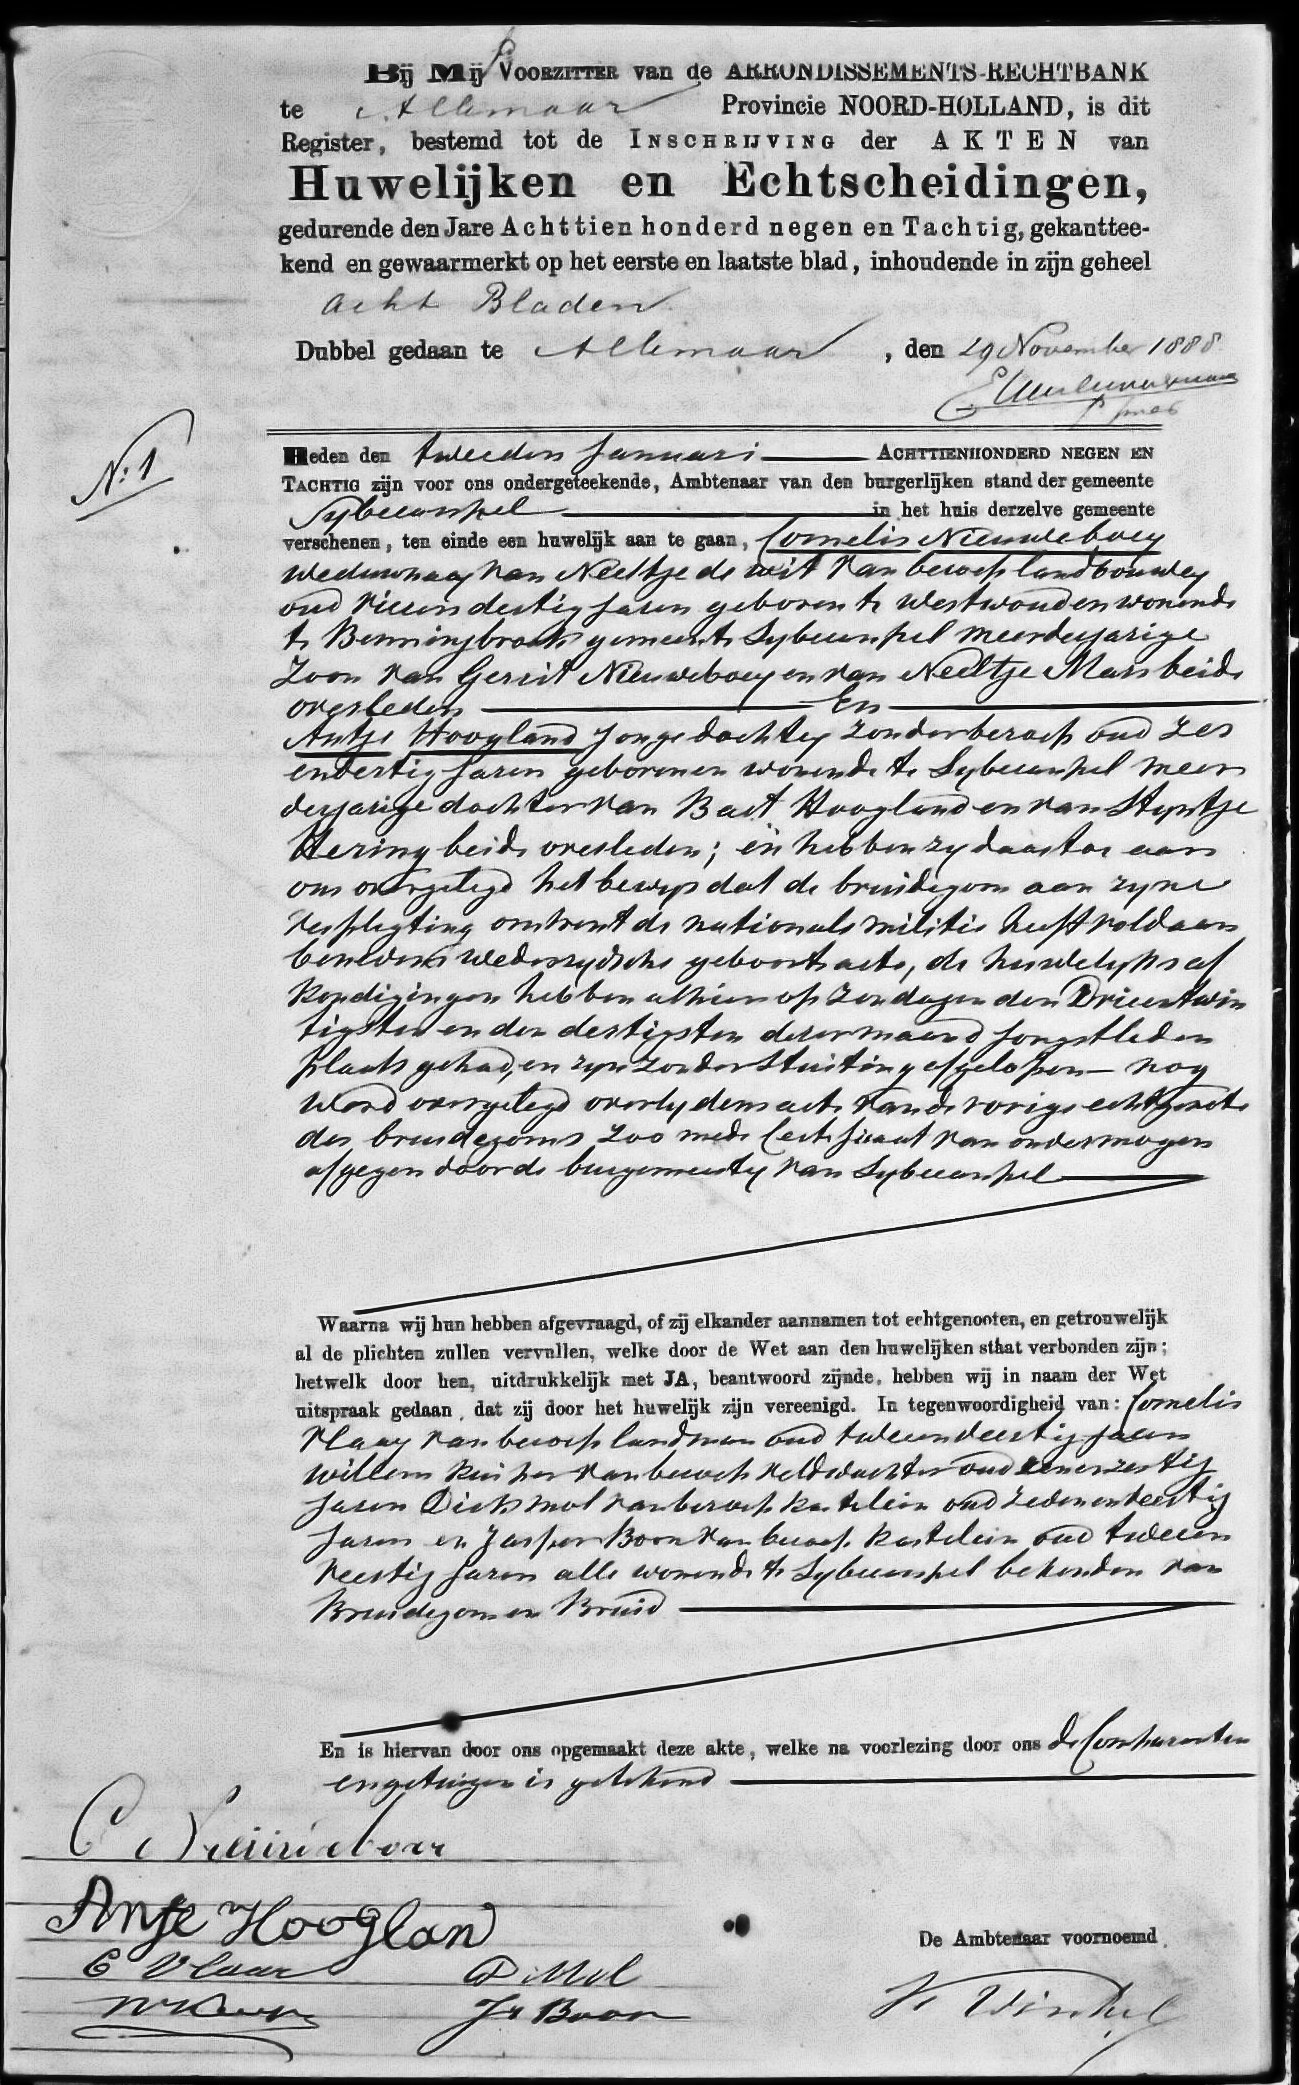 Bij Mij Voorzitter van de ARRONDISSEMENTS-RECHTBANK
te Alkmaar Provincie NOORD-HOLLAND, is dit
Register, bestemd tot de Inschrijving der AKTEN van
Huwelijken en Echtscheidingen,
gedurende den Jare Achttien honderd negen en Tachtig, gekanttee-
kend en gewaarmerkt op het eerste en laatste blad, inhoudende in zijn geheel
acht Bladen
Dubbel gedaan te Alkmaar, den 29 November 1888
No. 1
Heden den tweeden Januari Achttienhonderd negen en
Tachtig zijn voor ons ondergeteekende, Ambtenaar van den burgerlijken stand der gemeente
Sybecarspel in het huis derzelve gemeente
verschenen, ten einde een huwelijk aan te gaan, Cornelis Nieuweboer
weduwnaar van Neeltje de wit van beroep landbouwer
oud vierendertig jaren geboren te Westwoud en wonende
te Benningbroek gemeente Sybecarspel meerderjarige
Zoon van Gerrit Nieuweboer en van Neeltje Mars beide
overleden En
Antje Hoogland Jonge dochter zonder beroep oud zes
endertig jaren geboren en wonende te Sybecarspel meer
derjarige dochter van Bart Hoogland en van Styntje
Hering beide overleden; en hebben zy daartoe aan
ons overgelegd het bewys dat de bruidegom aan zyne
verpligting omtrent de nationale militie heeft voldaan
benevens wederzydsche geboorteacte, de huwelyks af
kondigingen hebben alhier op Zondagen den Drieentwin
tigsten en den dertigsten dezer maand jongstleden
plaats gehad, en zyn zonder stuiting afgelopen nog
werd overgelegd overlydensacte van de vorige echtgenote
des bruidegoms zoo mede Certificaat van onvermogen
afgegen door de burgemeester van Sybecarspel
Waarna wij hun hebben afgevraagd, of zij elkander aannamen tot echtgenooten, en getrouwelijk
al de plichten zullen vervullen, welke door de Wet aan den huwelijken staat verbonden zijn;
hetwelk door hen, uitdrukkelijk met JA, beantwoord zijnde, hebben wij in naam der Wet
uitspraak gedaan, dat zij door het huwelijk zijn vereenigd. In tegenwoordigheid van: Cornelis
Vlaar van beroep landman oud tweeenveertig jaren
Willem van beroep veldwachter oud eenenzestig
jaren Dirk Mol van beroep kastelein oud zevenenveertig
jaren en Jasper Boon van beroep kastelein oud tweeen
veertig jaren alle wonende te Sybecarspel bekenden van
Bruidegom en Bruid
En is hiervan door ons opgemaakt deze akte, welke na voorlezing door ons de Comparanten
en getuigen is getekend
C Nieuweboer
Antje Hooglan
C Vlaar D Mol
Jr Boon
De Ambtenaar voornoemd
Winkel